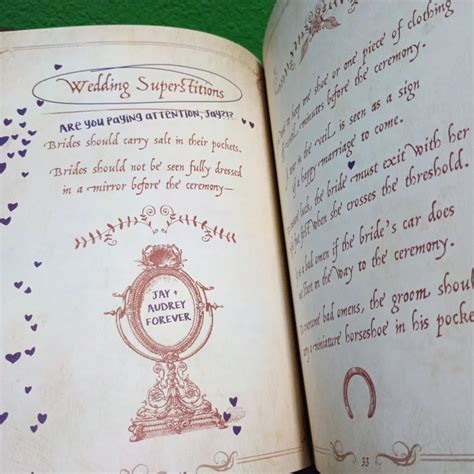 Wedding Superstitions
ARE YOU PAYING ATTENTION, JAY?!?
Brides should carry salt in their pockets.
Brides should not be seen fully dressed
in a mirror before the ceremony—
JAY +
AUDREY
FOREVER
one shoe or one piece of clothing
minutes before the ceremony.
in the veil is seen as a sign
of a happy marriage to come.
luck, the bride must exit with her
foot when she crosses the threshold.
is a bad omen if the bride's car does
not start on the way to the ceremony.
overcome bad omens, the groom should
carry a miniature horseshoe in his pocket
33